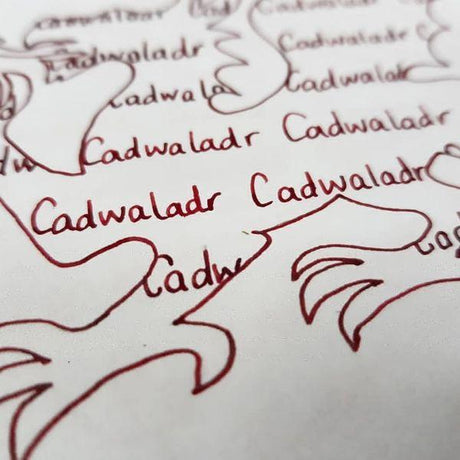 Cadwaladr Cad
Cadwaladr Cadwaladr
Cadwala Cadwaladr
Cadwaladr Cadwaladr
Cadwaladr Cadwaladr
Cadw Cad